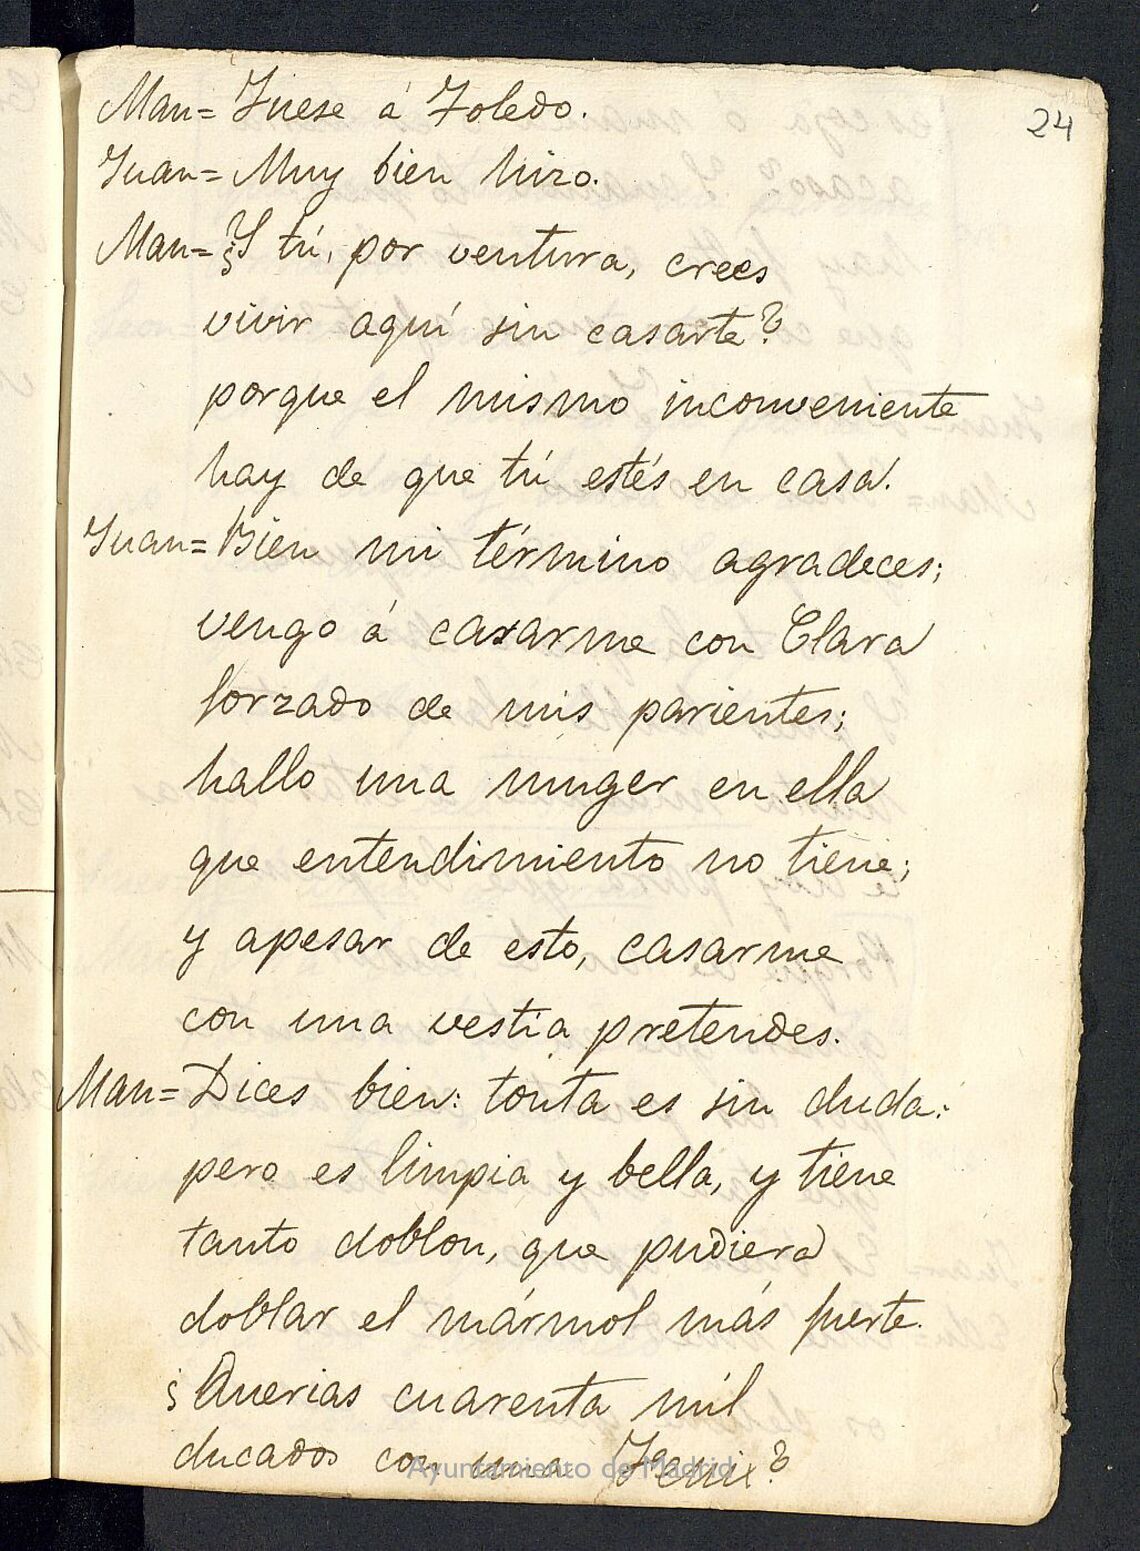 24
Man= Fuese á Toledo.
Juan= Muy bien hizo.
Man= ¿Y tú, por ventura, crees
vivir aquí sin casarte?
porque el mismo inconveniente
hay de que tú estés en casa.
Juan= Bien mi término agradeces;
vengo á casarme con Clara
forzado de mis parientes;
hallo una muger en ella
que entendimiento no tiene;
y apesar de esto, casarme
con una vestia pretendes.
Man= Dices bien: tonta es sin duda:
pero es limpia y bella, y tiene
tanto doblon, que pudiera
doblar el mármol más fuerte.
¿Querias cuarenta mil
ducados con una Fenix?
Ayuntamiento de Madrid